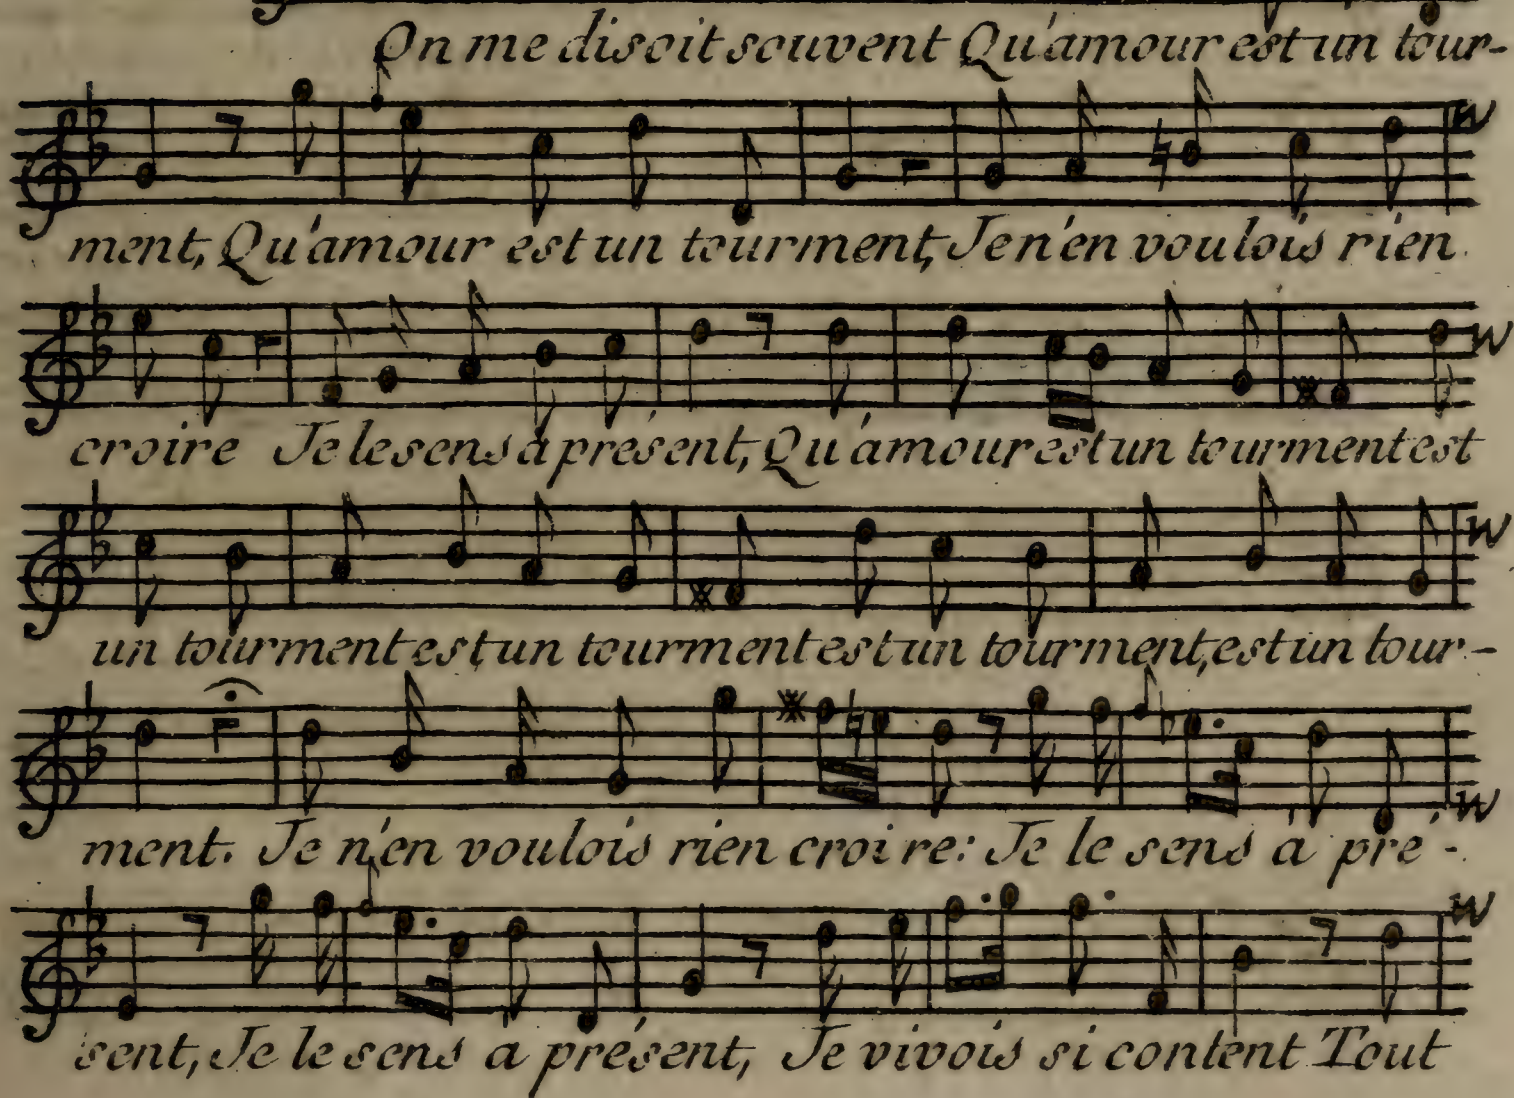 On me disoit souvent Qu'amour est un tour-
ment, Qu'amour est un tourment, Je n'en voulois rien
croire Je le sens à présent, Qu'amour est un tourment est
un tourment est un tourment est un tourment, est un tour-
ment. Je n'en voulois rien croire: Je le sens à pré-
sent, Je le sens a présent, Je vivois si content Tout